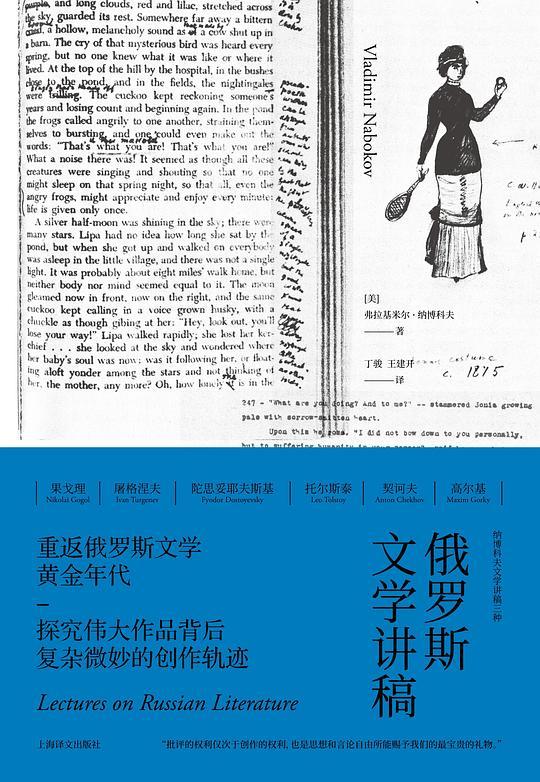 purple, and long clouds, red and lilac, stretched across
the sky, guarded its rest. Somewhere far away a bittern
cried, a hollow, melancholy sound as of a cow shut up in
a barn. The cry of that mysterious bird was heard every
spring, but no one knew what it was like or where it
lived. At the top of the hill by the hospital, in the bushes
close to the pond, and in the fields, the nightingales
were trilling. The cuckoo kept reckoning someone's
years and losing count and beginning again. In the pond
the frogs called angrily to one another, straining them-
selves to bursting, and one could even make out the
words: "That's what you are! That's what you are!"
What a noise there was! It seemed as though all these
creatures were singing and shouting so that no one
might sleep on that spring night, so that all, even the
angry frogs, might appreciate and enjoy every minute:
life is given only once.
A silver half-moon was shining in the sky; there were
many stars. Lipa had no idea how long she sat by the
pond, but when she got up and walked on everybody
was asleep in the little village, and there was not a single
light. It was probably about eight miles' walk home, but
neither body nor mind seemed equal to it. The moon
gleamed now in front, now on the right, and the same
cuckoo kept calling in a voice grown husky, with a
chuckle as though gibing at her: "Hey, look out, you'll
lose your way!" Lipa walked rapidly; she lost her ker-
chief . . . she looked at the sky and wondered where
her baby's soul was now: was it following her, or float-
ing aloft yonder among the stars and not thinking of
her, the mother, any more? Oh, how lonely it is in the
Vladimir Nabokov
[美]
弗拉基米尔·纳博科夫
——著
丁骏 王建开
——译
costume
c. 1875
247 - "What are you doing? And to me?" -- stammered Sonia growing
pale with sorrow-smitten heart.
Upon this he rose. "I did not bow down to you personally,
果戈理
Nikolai Gogol
屠格涅夫
Ivan Turgenev
陀思妥耶夫斯基
Fyodor Dostoyevsky
托尔斯泰
Leo Tolstoy
契诃夫
Anton Chekhov
高尔基
Maxim Gorky
纳博科夫文学讲稿三种
俄罗斯
文学讲稿
重返俄罗斯文学
黄金年代
–
探究伟大作品背后
复杂微妙的创作轨迹
Lectures on Russian Literature
上海译文出版社
“批评的权利仅次于创作的权利,也是思想和言论自由所能赐予我们的最宝贵的礼物。”